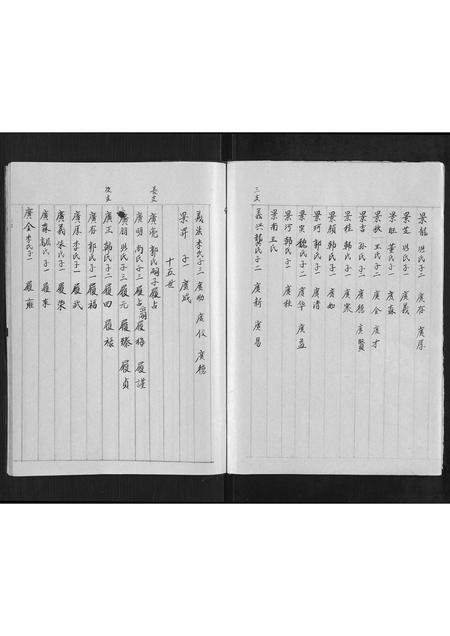 景龍 洪氏子二 廣存 廣厚
景芝 洪氏子一 廣義
景旺 董氏子二 廣森
景欽 王氏子二 廣金 廣才
景吉 孫氏子二 廣德 廣賢
景桂 韓氏子一 廣寒
景頻 郭氏子一 廣如
景珂 郭氏子一 廣清
景賓 魏氏子二 廣華 廣益
景河 韓氏子一 廣柱
景南 王氏
三支
義洪 龔氏子二 廣新 廣易
義法 李氏子三 廣勛 廣儀 廣德
景昇 子一 廣成
十五世
長支
廣亮 郭氏嗣子履占
廣明 尚氏子三 履占 履梅 履謹
廣朋 洪氏子三 履元 履臻 履貞
次支
廣正 韓氏子二 履四 履福
廣存 郭氏子一 履福
廣厚 李氏子一 履武
廣義 張氏子一 履榮
廣森 氏子二 履東
廣金 李氏子一 履雍